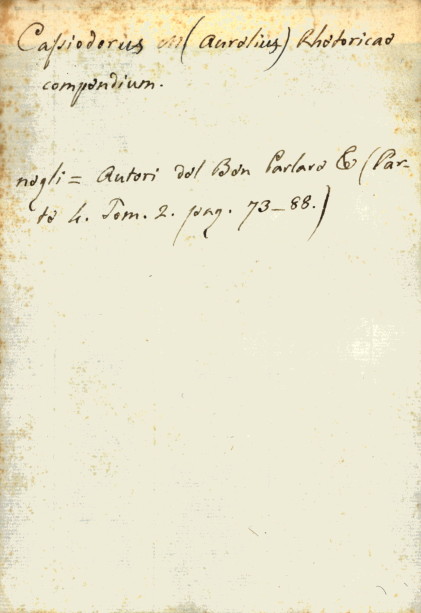 Cassiodorus M (Aurelius) Rhetoricae
compendium.
negli = Autori del Ben Parlare & (Par-
te 4. Tom. 2. pag. 73-88.)